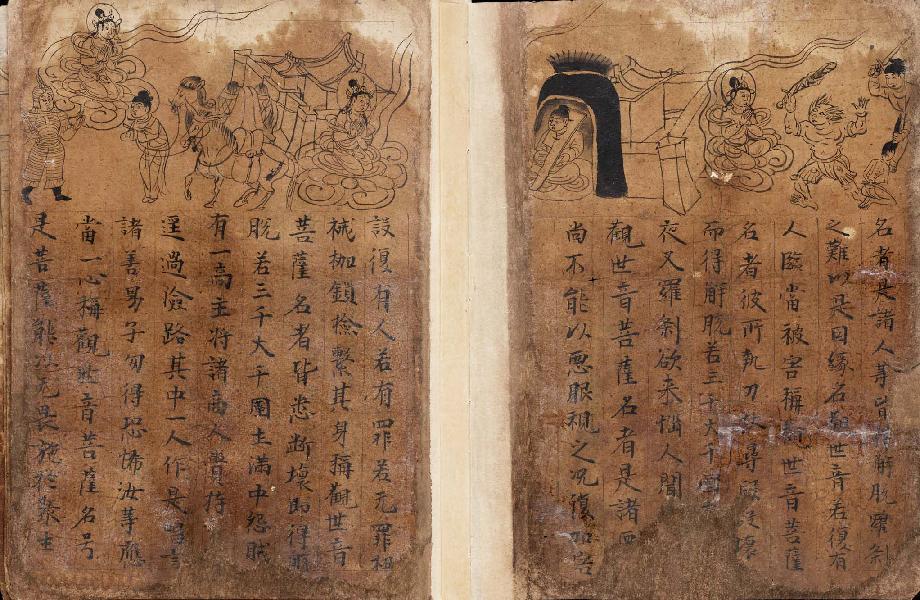 名者是諸人等皆得解脫羅剎
之難以是因緣名觀世音若復有
人臨當被害稱觀世音菩薩
名者彼所執刀杖尋段段壞
而得解脫若三千大千國
夜叉羅剎欲來惱人聞
觀世音菩薩名者是諸
尚不能以惡眼視之況復加害
設復有人若有罪若无罪杻
械枷鎖檢繫其身稱觀世音
菩薩名者皆悉斷壞即得
脫若三千大千國土滿中怨賊
有一商主將諸商人齎持
逕過險路其中一人作是唱言
諸善男子勿得恐怖汝等應
當一心稱觀世音菩薩名号
是菩薩能以无畏施於眾生